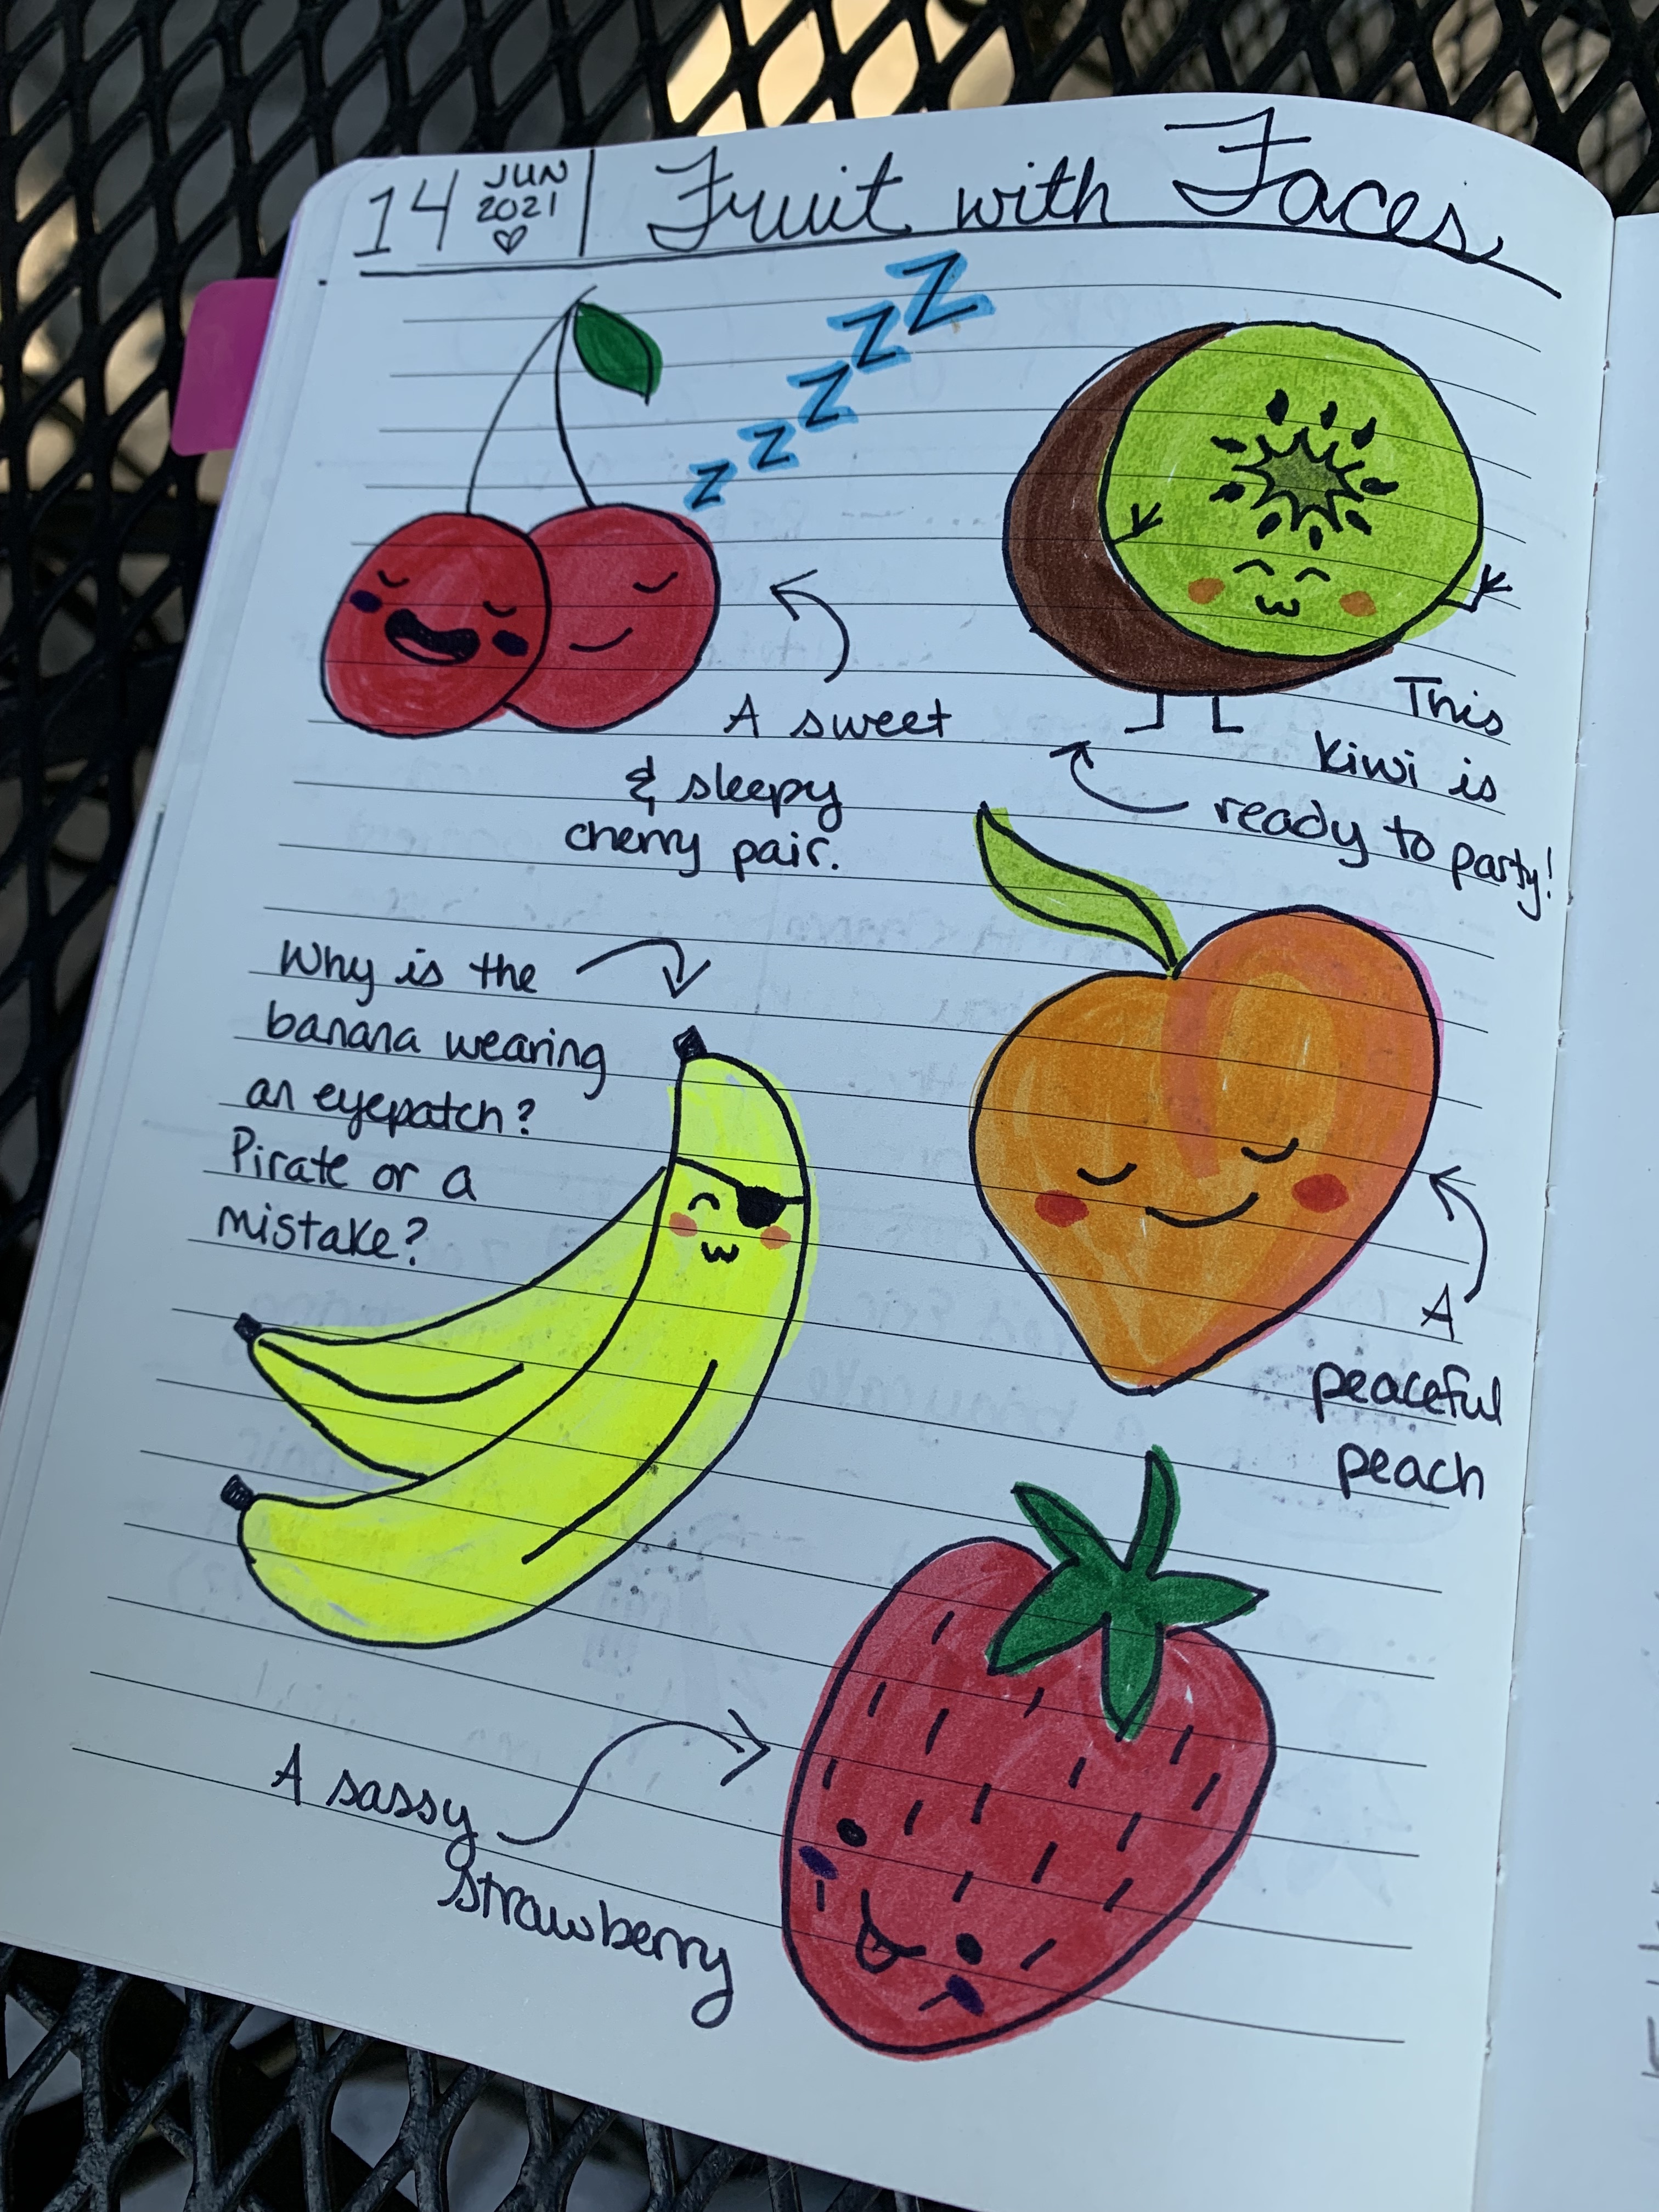 14 JUN 2021 | Fruit with Faces
z z z z z
A sweet
& sleepy
cherry pair.
This
kiwi is
ready to party!
Why is the
banana wearing
an eyepatch?
Pirate or a
mistake?
A
peaceful
peach
A sassy
strawberry